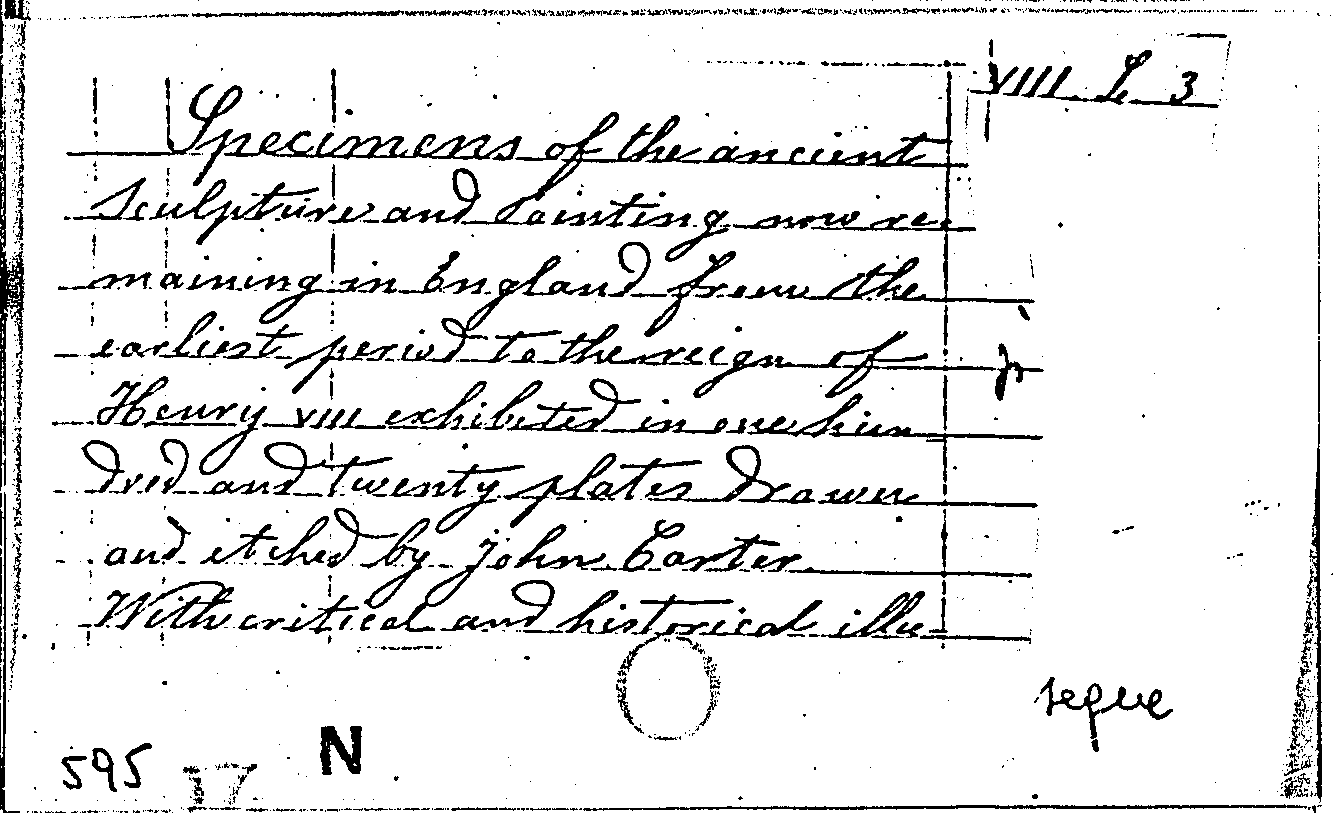 VIII L 3
Specimens of the ancient
sculpture and Painting now re-
maining in England from the
earliest period to the reign of
Henry VIII exhibited in one hun
dred and twenty plates drawn
and etched by John Carter
With critical and historical illu-
segue
N
595